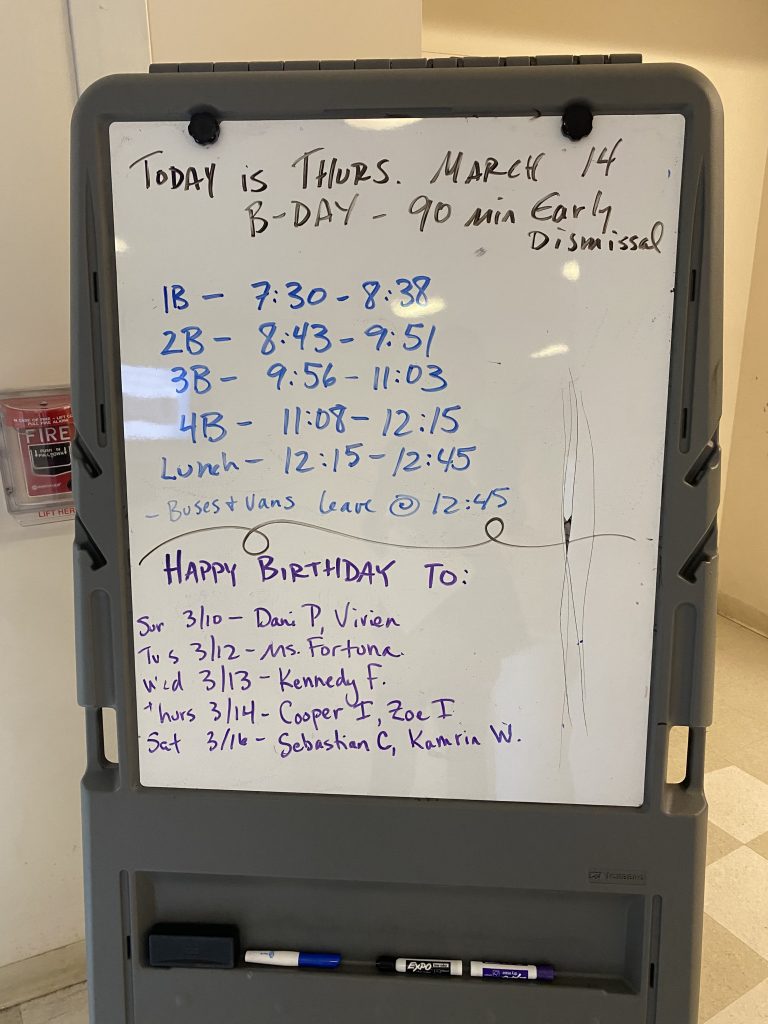 TODAY is THURS. MARCH 14
B-DAY - 90 min Early
Dismissal
1B - 7:30 - 8:38
2B - 8:43 - 9:51
3B - 9:56 - 11:03
4B - 11:08 - 12:15
Lunch - 12:15 - 12:45
- Buses + Vans leave @ 12:45
HAPPY BIRTHDAY TO:
Sun 3/10 - Dani P, Vivien
Tues 3/12 - Ms. Fortuna.
Wed 3/13 - Kennedy F.
Thurs 3/14 - Cooper I, Zoe I
Sat 3/16 - Sebastian C, Kamrin W.
FIRE
PULL DOWN
LIFT HERE
EXPO